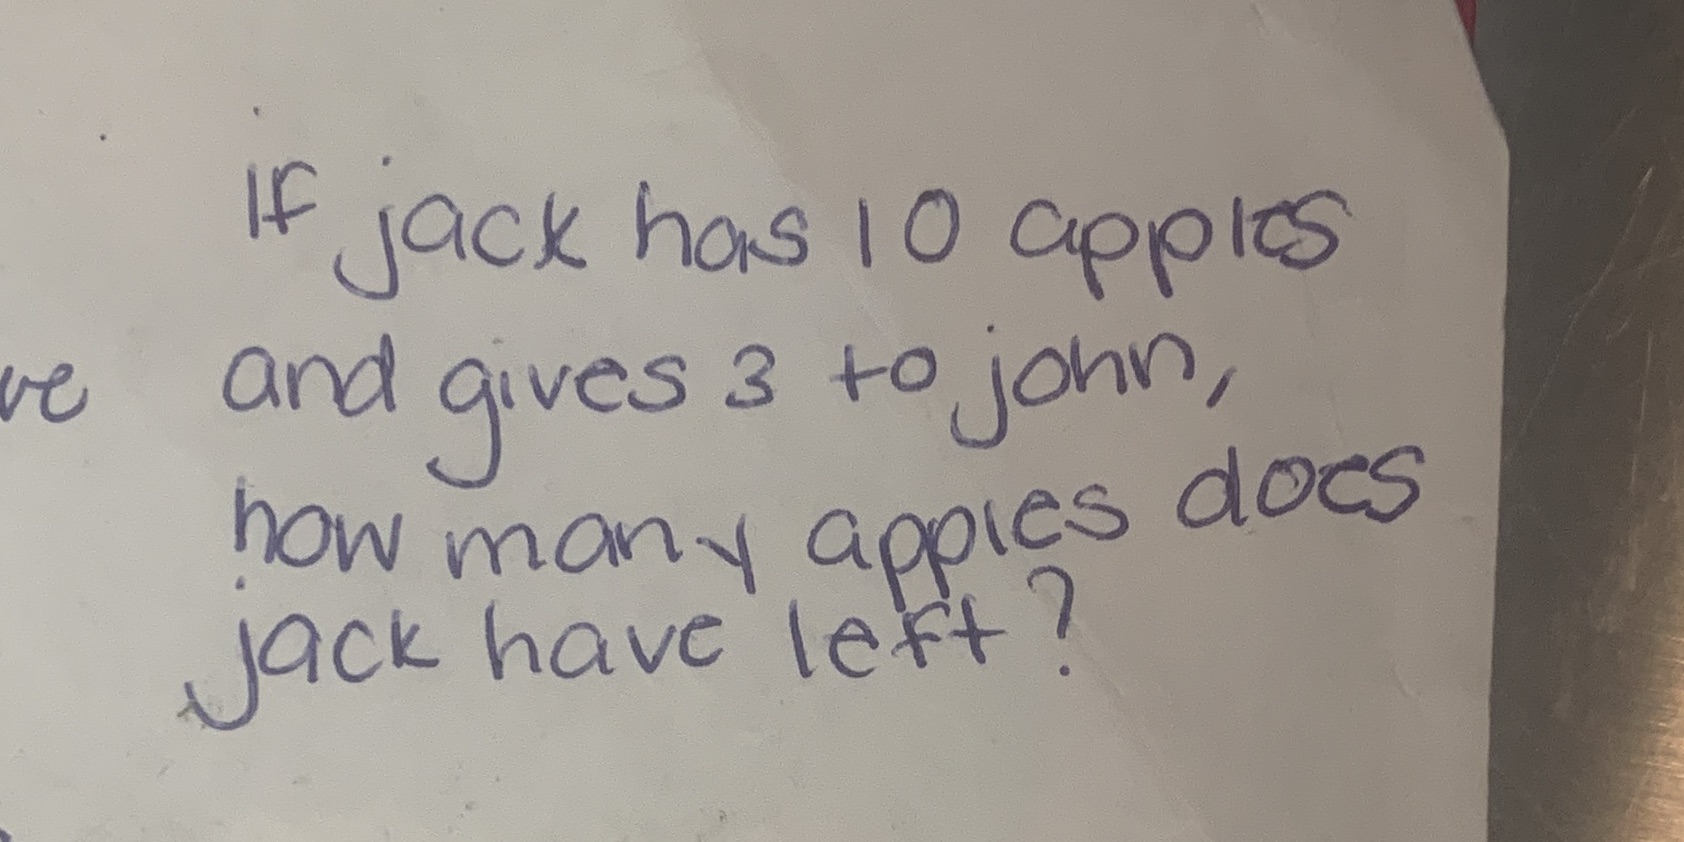 If jack has 10 apples
and gives 3 to john,
how many apples does
jack have left?